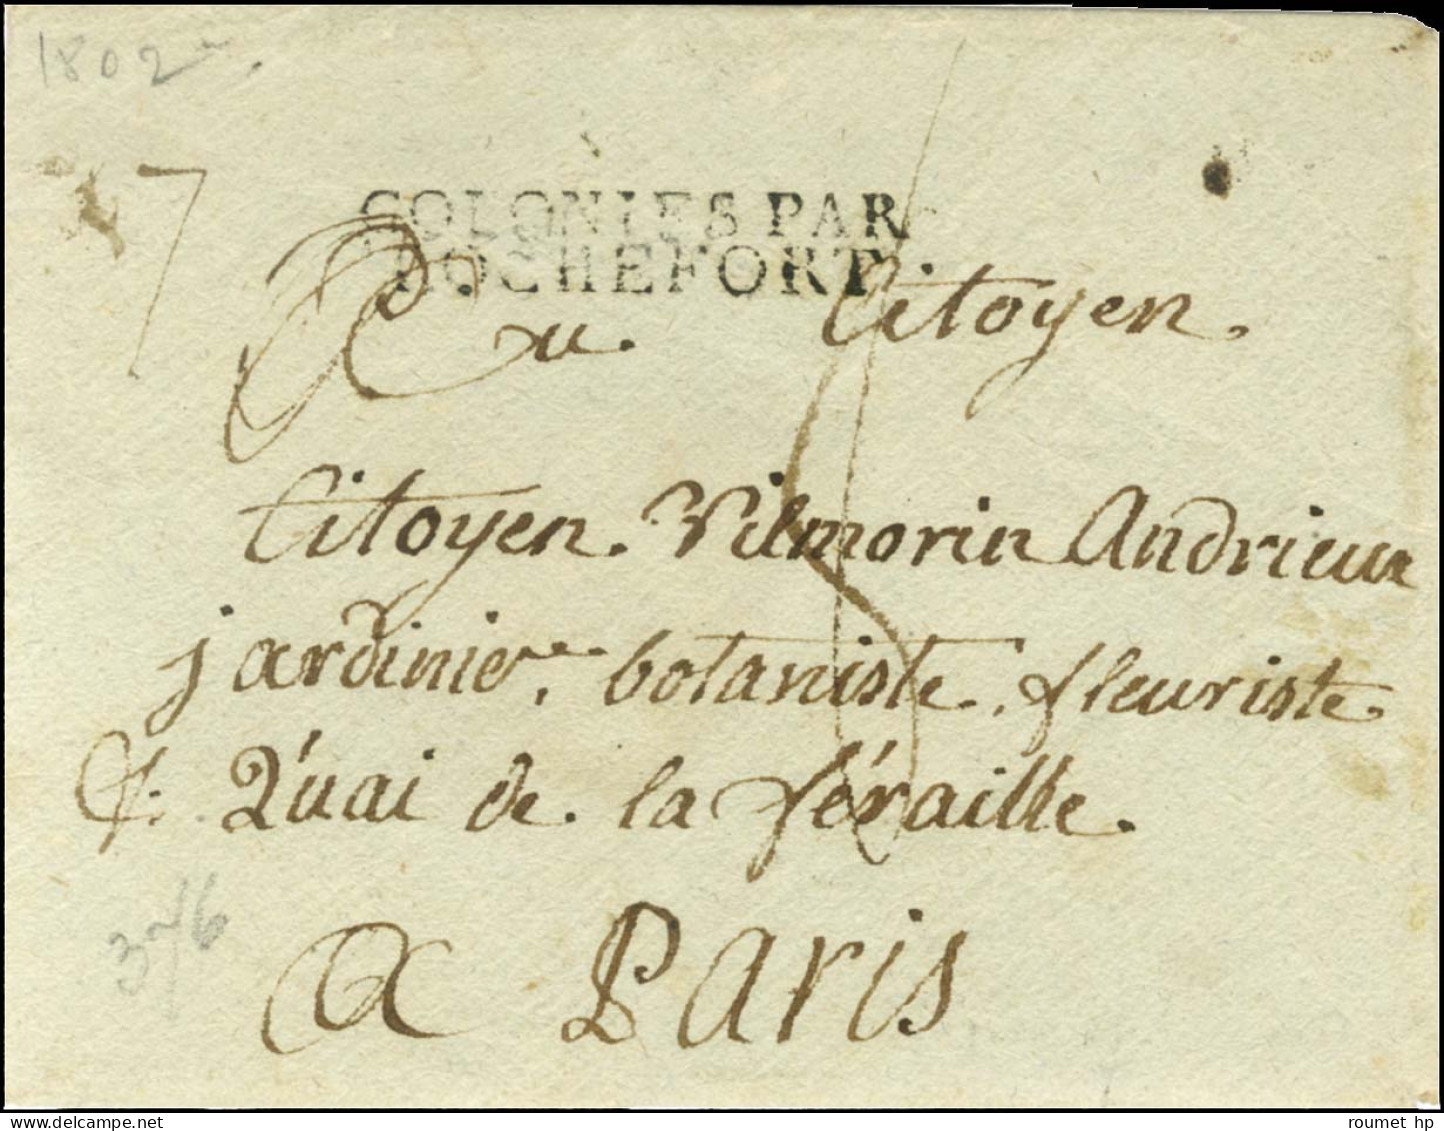 1802
7
COLONIES PAR
ROCHEFORT
Au Citoyen.
Citoyen. Vilmorin Andrieux
jardinier. botaniste. fleuriste
&. Quai de la féraille.
a Paris
roumet hp